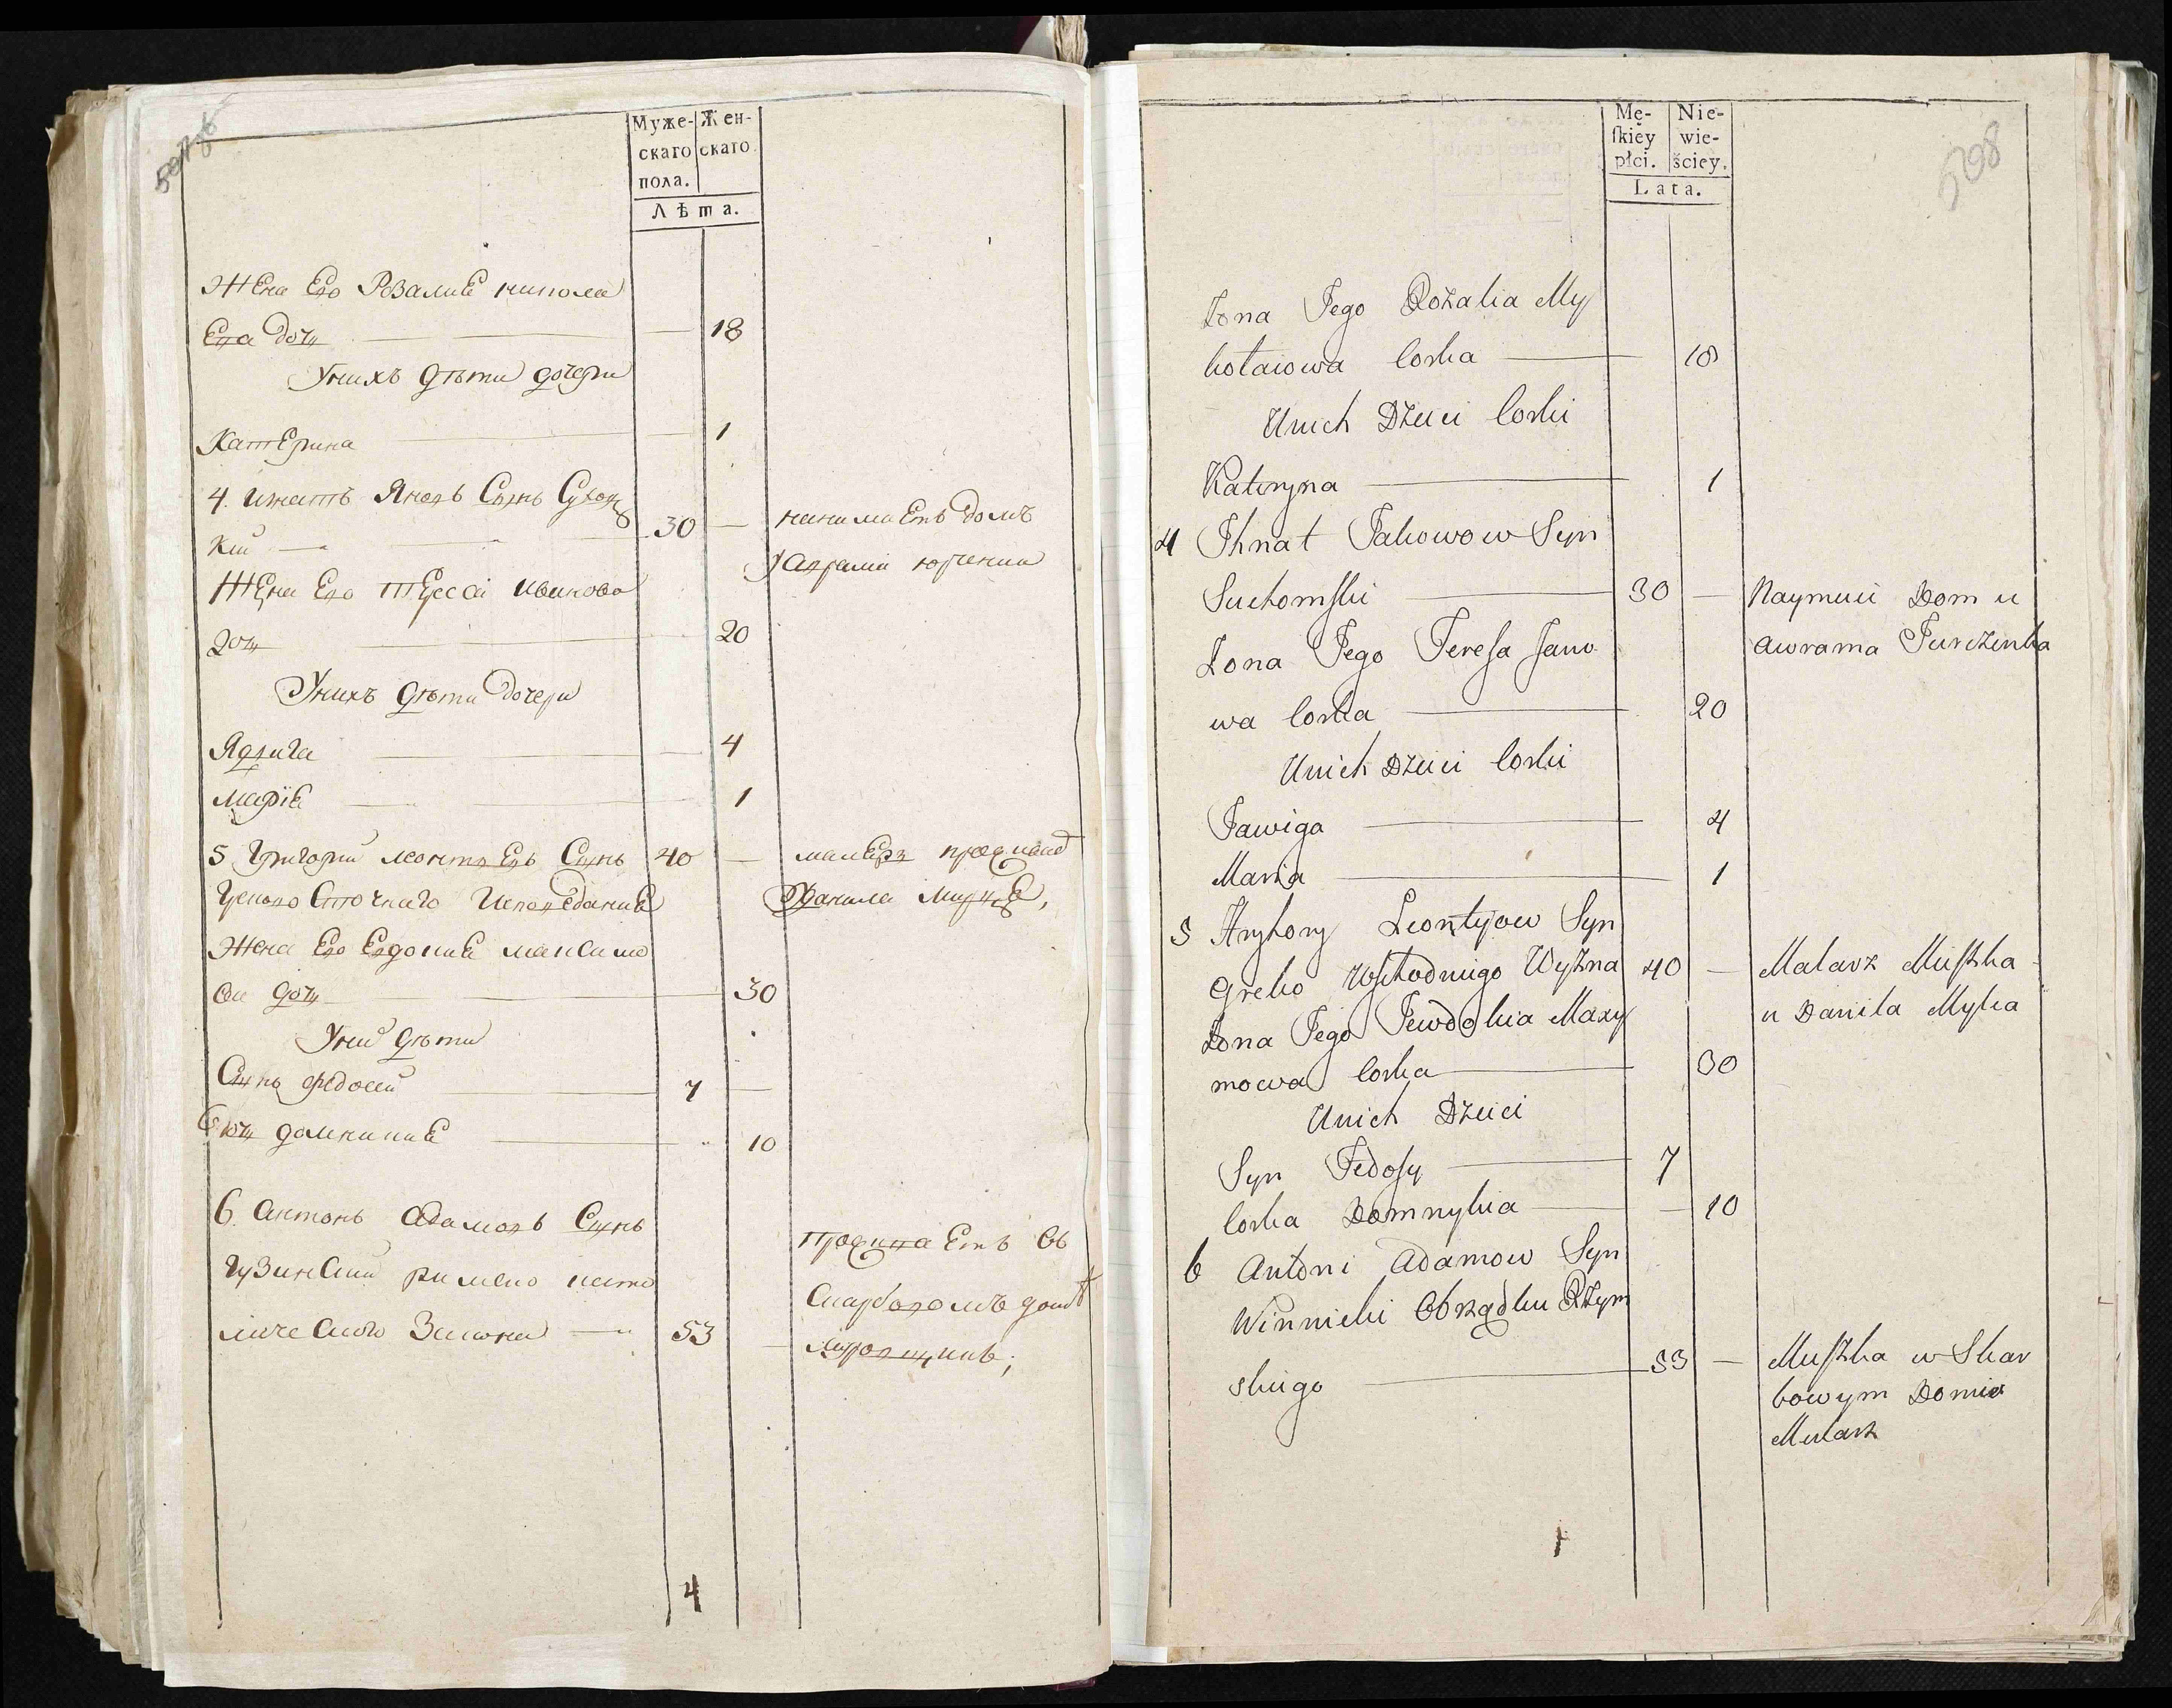 Муже-
скаго
пола.
Жен-
скаго
Лѣта.
Жена Его Розалиѣ никола
Ева дочъ — 18
Унихъ дѣти дочери
Катерина — 1
4. игнатъ Яковъ Сынъ Сухом
кій — 30 —
нанимаетъ домъ
Жена Его тересса иванова
дочъ — 20
Унихъ дѣти дочери
Ядвига — 4
марія — 1
5 Григорий леонтьевъ Сынъ 40 —
маляръ
Данила
Жена Его Евдокиѣ максимо
ва дочъ — 30
Уних дѣти
Сынъ федосий — 7 —
дочъ домникиѣ — 10
6. антонъ адамовъ Сынъ
римско като
лическаго Закона — 53 —
4
Mę-
skiey
płci.
Nie-
wie-
ściey.
Lata.
598
Żona Jego Rozalia My
kołaiowa Corka — 18
Unich Dzieci Corki
Kateryna — 1
4 Ihnat Jakowow Syn
Suchomski — 30 — Naymuii Dom u
awrama Jurczenka
Żona Jego Teresa Jano
wa Corka — 20
Unich Dzieci Corki
Jawiga — 4
Maria — 1
5 Hryhory Leontyow Syn
Greko Wschodniego Wyzna 40 — Malarz Mieszka
u Daniła Myka
Żona Jego Jewdokia Maxy
mowa Corka — 30
Unich Dzieci
Syn Fedosy — 7
Corka Domnykia — 10
6 Antoni Adamow Syn
Winnicki Obrządku Rzym
skiego — 53 — Mieszka w Skar
bowym Domie
Mularz